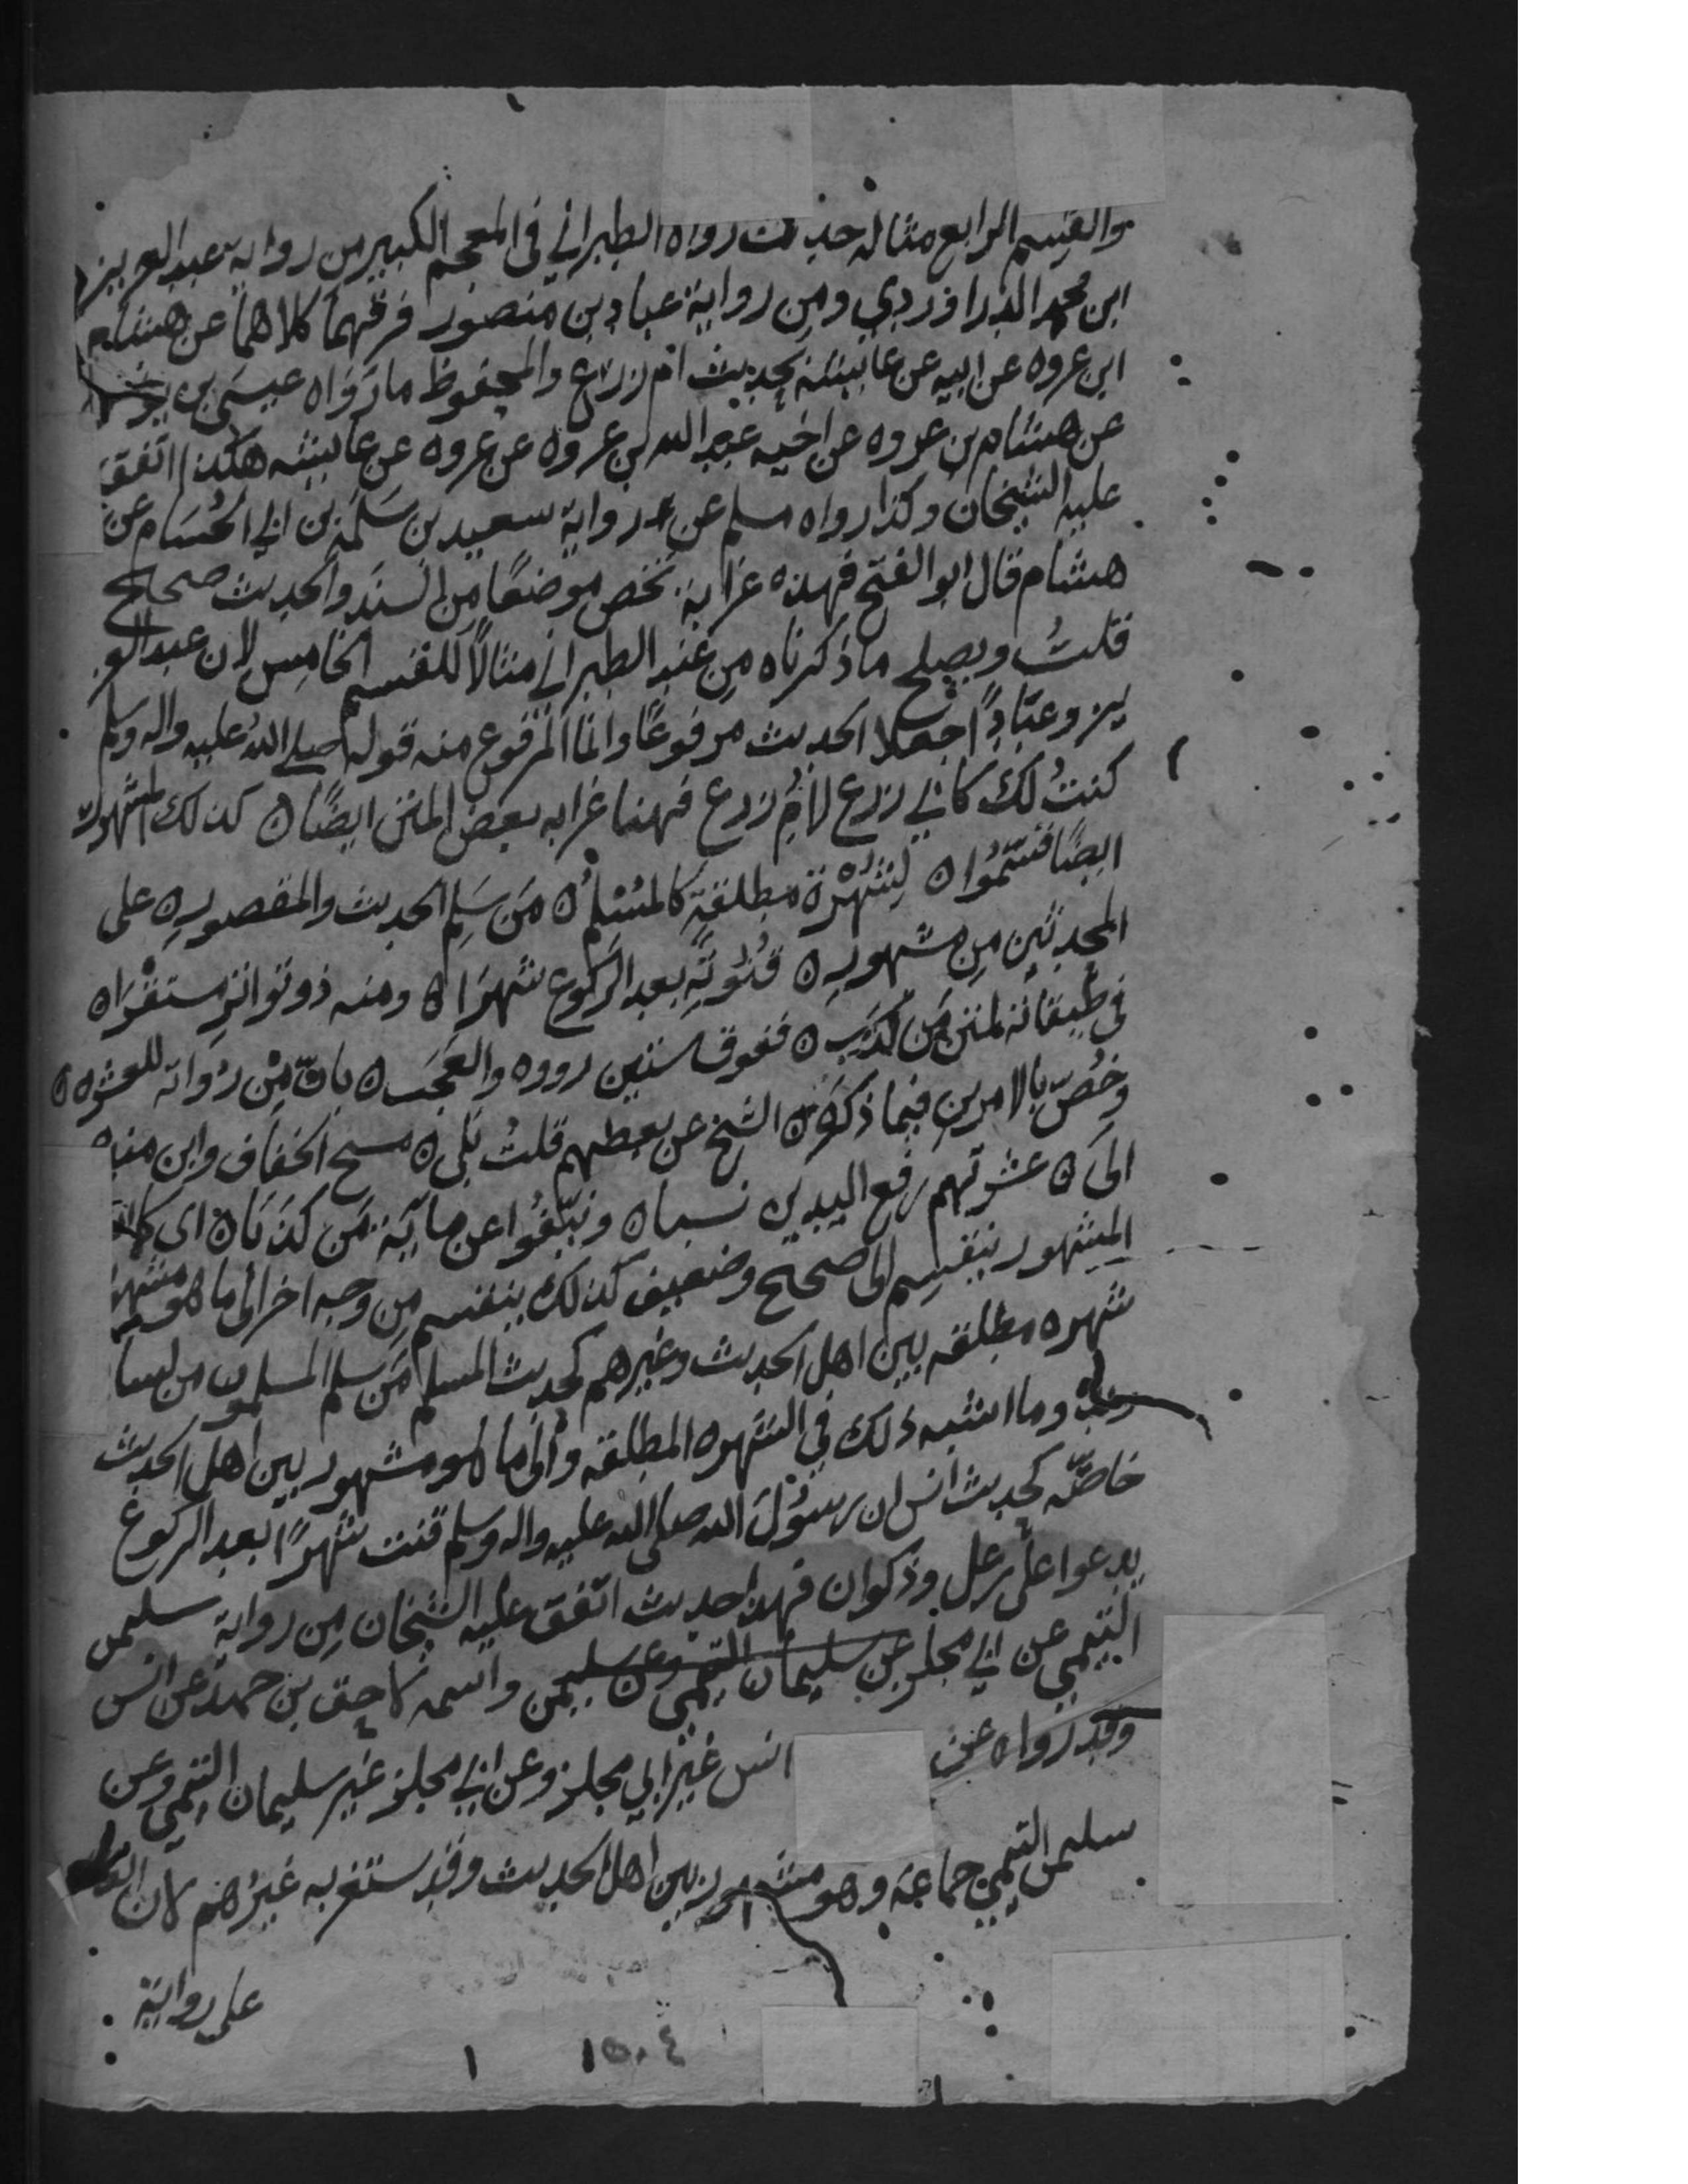 والقسم الرابع مثاله حديث رواه الطبراني في المعجم الكبير من رواية عبد العزيز
ابن محمد الدراوردي ومن رواية عباد بن منصور فرقهما كلاهما عن هشام
ابن عروه عن ابيه عن عائشة بحديث ام زرع والمحفوظ ما رواه عيسى بن يونس
عن هشام بن عروه عن اخيه عبد الله بن عروه عن عروه عن عائشه هكذا اتفق
عليه الشيخان وكذا رواه مسلم عن رواية سعيد بن سلمة بن ابي الحسام عن
هشام قال ابو الفتح فهذه غرابة تخص موضعًا من السند والحديث صحيح
قلت ويصلح ما ذكرناه من عند الطبراني مثالًا للقسم الخامس لان عبد العز
يز وعبادًا جعلا الحديث مرفوعًا وانما المرفوع منه قوله صلى الله عليه واله وسلم
كنت لك كابي زرع لام زرع فهذا غرابه بعض المتن ايضًا ٥ كذلك المشهور
ايضًا قسموا ٥ لشهرة مطلقة كالمسلم ٥ من سلم الحديث والمقصور ٥ على
المحدثين من مشهور ٥ قنوته بعد الركوع شهرا ٥ ومنه ذو تواتر مستقرا ٥
في طبقاته لمتن من كذب ٥ ففوق ستين رووه والعجب ٥ بان من رواته للعشره ٥
وخص بالامرين فيما ذكره ٥ الشيخ عن بعضهم قلت بلى ٥ مسح الخفاف وابن منده
الى ٥ عشرتهم رفع اليدين نسبا ٥ ونيفوا عن مائة من كذبا ٥ اى كما ان
المشهور ينقسم الى صحيح وضعيف كذلك ينقسم من وجه اخر الى ما هو مشهور
شهره مطلقه بين اهل الحديث وغيرهم كحديث المسلم من سلم المسلمون من لسا
نه وما اشبه ذلك في الشهره المطلقه والى ما هو مشهور بين اهل الحديث
خاصّه كحديث انس ان رسول الله صلى الله عليه واله وسلم قنت شهرًا بعد الركوع
يدعوا على رعل وذكوان فهذا حديث اتفق عليه الشيخان من رواية سليمن
التيمي عن ابي مجلز عن سليمان التيمي وعن سليمن واسمه لاحق بن حميد عن انس
وقد رواه عن انس غير ابي مجلز وعن ابي مجلز غير سليمان التيمي وعن
سليمن التيمي جماعة وهو مشهور بين اهل الحديث وقد يستغربه غيرهم لان الغالب
على رواية
١٥٠٤